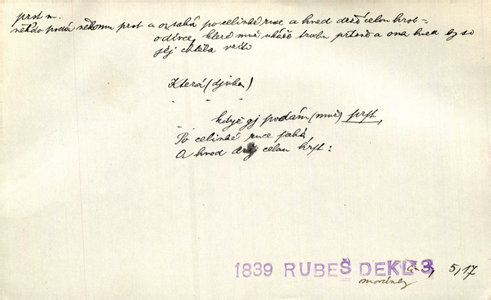 prst m.
někdo podá někomu prst a on sahá po celinké ruce a hned drží celou hrst =
o dívce, které muž ukáže trochu přízně a ona hned by so
jej chtěla vzíti
Která (dívka)
když jj podám (muž) prst,
Po celinké ruce sahá,
A hned drží celou hrst:
1839 RUBEŠ DEKL 3,
5, 17